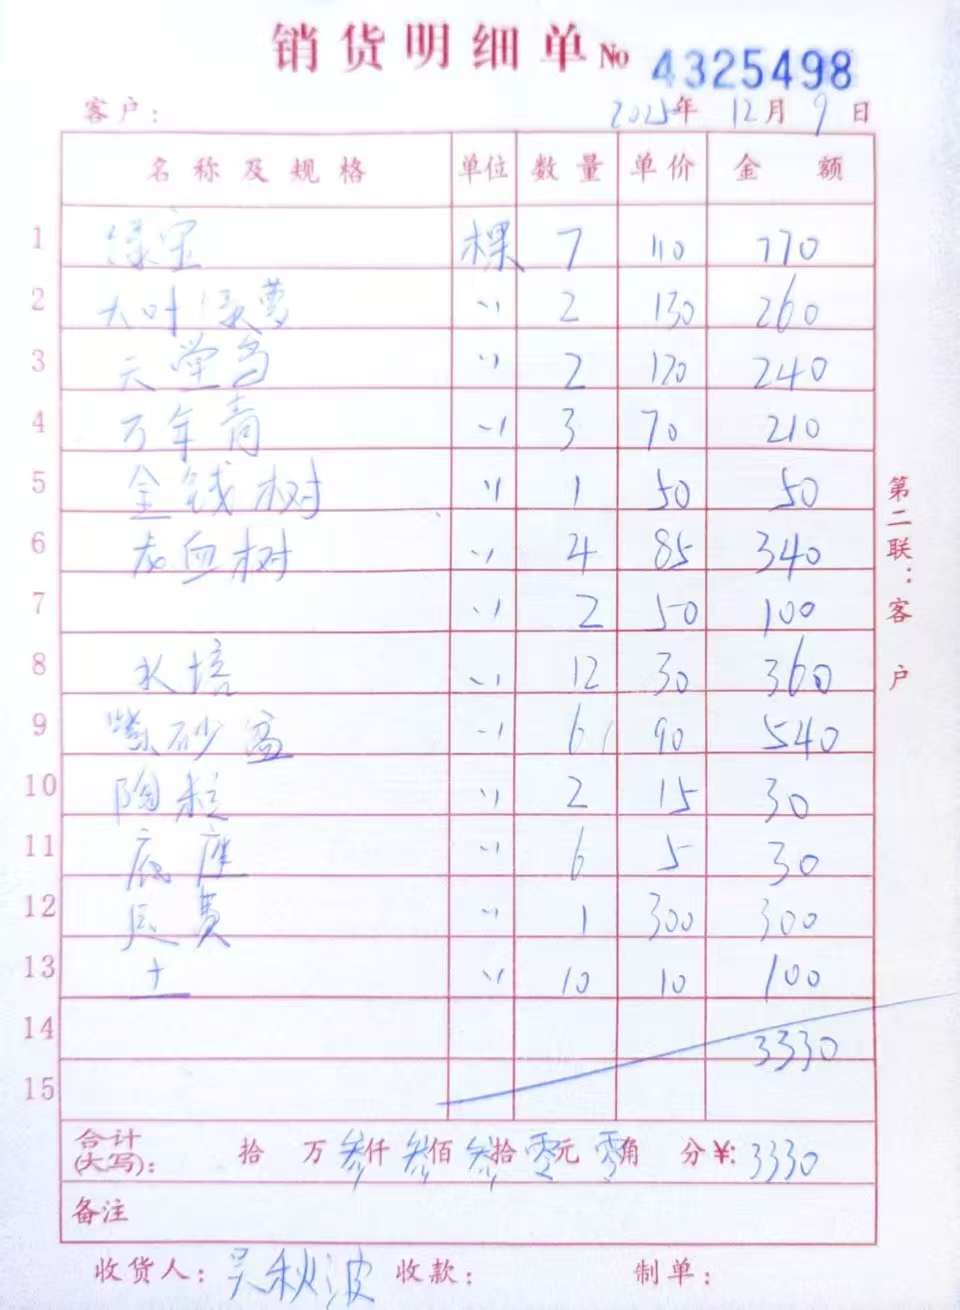 销货明细单 No 4325498
客户： 2025年12月9日
名称及规格 单位 数量 单价 金额
1 绿宝 棵 7 110 770
2 大叶绿萝 〃 2 130 260
3 天堂鸟 〃 2 120 240
4 万年青 〃 3 70 210
5 金钱树 〃 1 50 50
6 龙血树 〃 4 85 340
7 〃 2 50 100
8 水培 〃 12 30 360
9 紫砂盆 〃 6 90 540
10 陶粒 〃 2 15 30
11 底座 〃 6 5 30
12 运费 〃 1 300 300
13 土 〃 10 10 100
14 3330
15
合计(大写)： 拾 万 叁仟 叁佰 叁拾 零元 零角 分 ¥: 3330
备注
收货人：吴秋波 收款： 制单：
第二联：客户